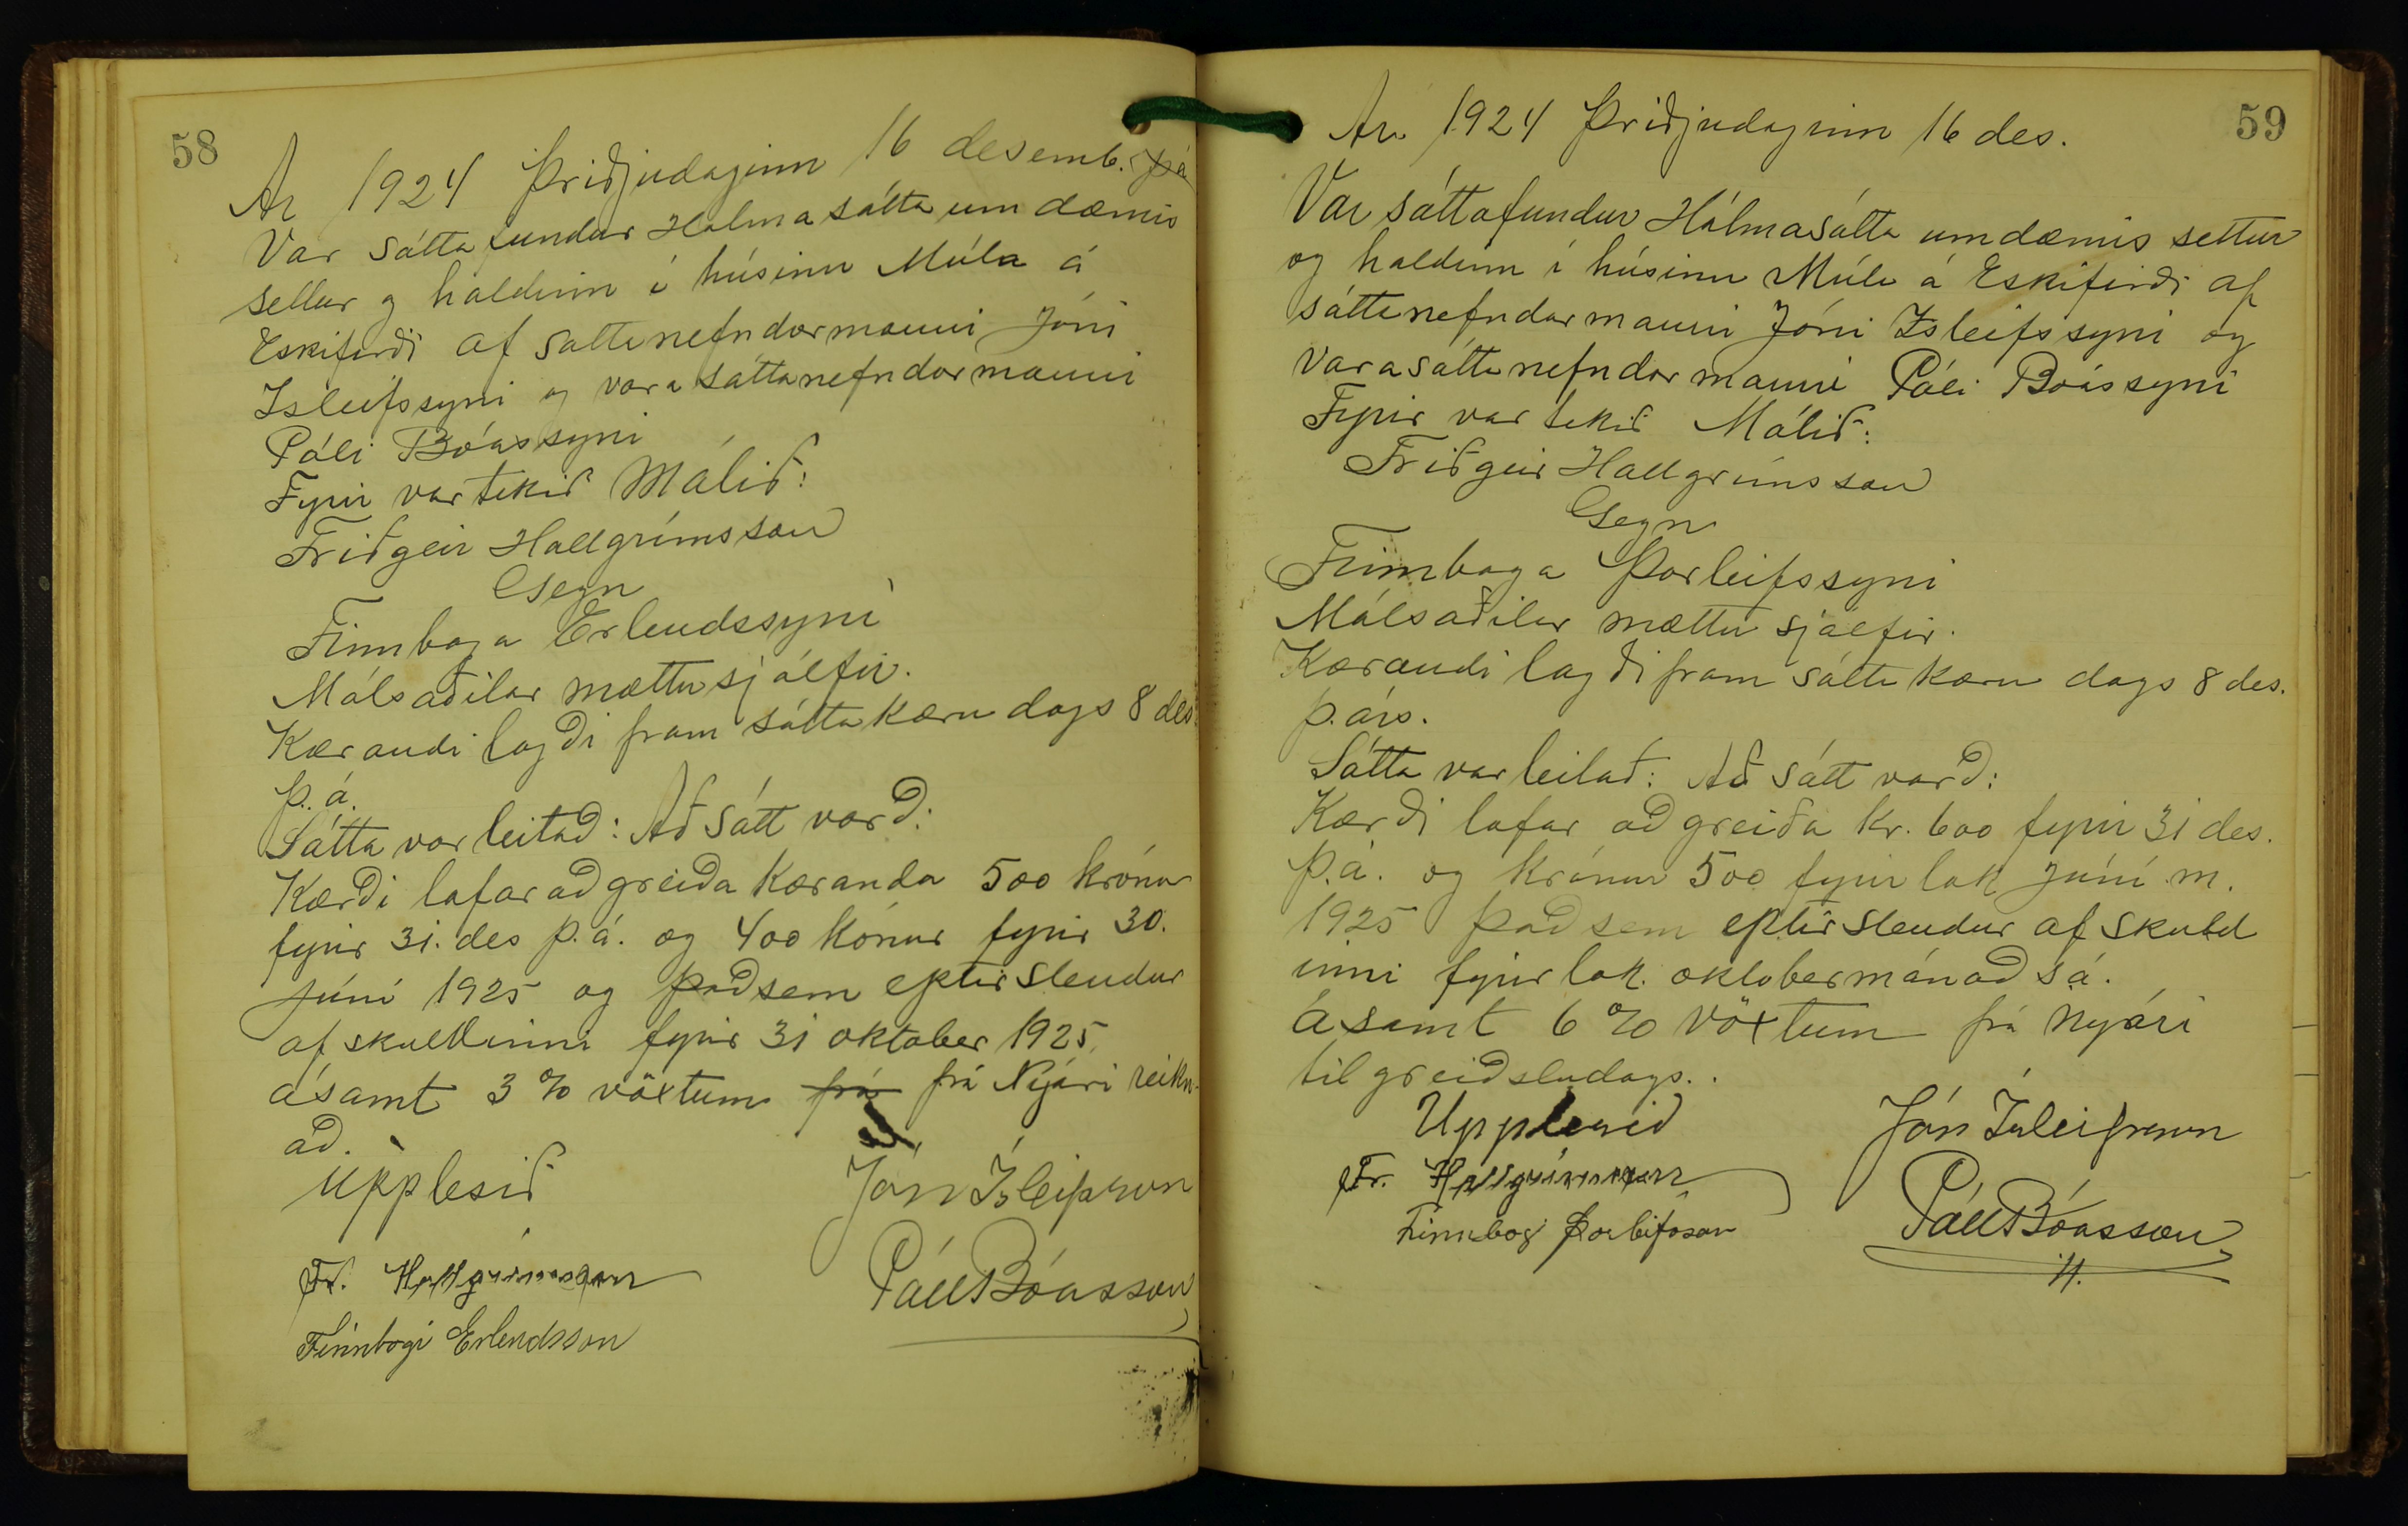 58
Ár 1924 þriðjudaginn 16 desemb. þá
Var sáttafundur Hólmasáttaumdæmis
settur og haldinn í húsinu Múla á
Eskifirði af sáttanefndarmanni Jóni
Isleifssyni og vara sáttanefndarmanni
Páli Bóassyni
Fyrir var tekið Málið:
Friðgeir Hallgrímsson
Gegn
Finnboga Erlendssyni
Málsaðilar mættu sjálfir.
Kærandi lagði fram sáttakæru dags 8 des.
þ.á.
Sátta var leitað: Að sátt varð:
Kærði lofar að greiða kæranda 500 krónur
fyrir 31. des þ.á. og 400 kónur fyrir 30.
júní 1925 og það sem eptir stendur
af skuldinni fyrir 31 oktober 1925
ásamt 3 % vöxtum frá frá Nýári reikn-
að.
Upplesið
Jón Ísleifsson
Fr. Hallgrímsson
Páll Bóasson
Finnbogi Erlendsson
59
Ár 1924 Þriðjudaginn 16 des.
Var sáttafundur Hólmasátta umdæmis settur
og haldinn í húsinu Múla á Eskifirði af
sáttanefndarmanni Jóni Isleifssyni og
varasáttanefndarmanni Páli Bóassyni
Fyrir var tekið Málið:
Friðgeir Hallgrímsson
Gegn
Finnboga Þorleifssyni
Málsaðilar mættu sjálfir.
Kærandi lagði fram sátta kæru dags 8 des.
þ.árs.
Sátta var leitað: Að sátt varð:
Kærði lofar að greiða kr. 600 fyrir 31 des.
þ.á. og krónur 500 fyrir lok júní m.
1925 það sem eptir stendur af skuld
inni fyrir lok oktobermánað s.á.
ásamt 6 % vöxtum frá nýári
til greiðsludags.
Upplesið
Jón Ísleifsson
Fr. Hallgrímsson
Páll Bóasson
Finnbogi Þorleifsson